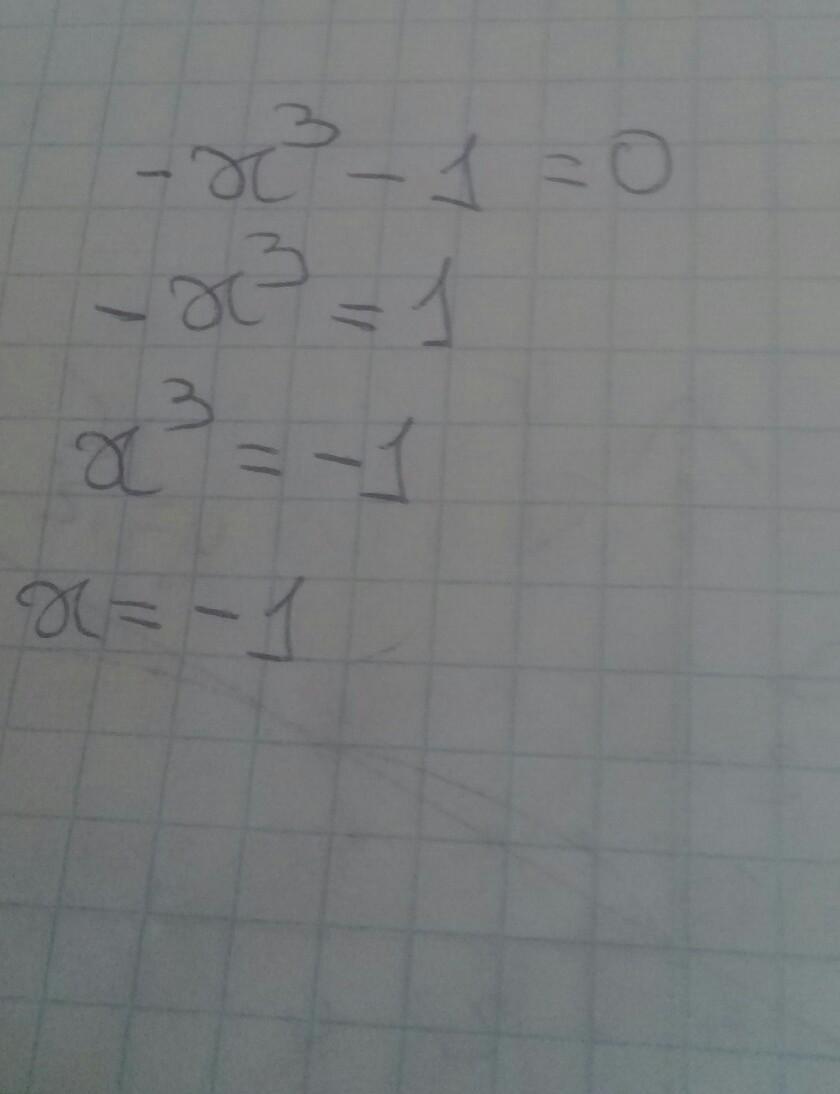 -x³ - 1 = 0
-x³ = 1
x³ = -1
x = -1